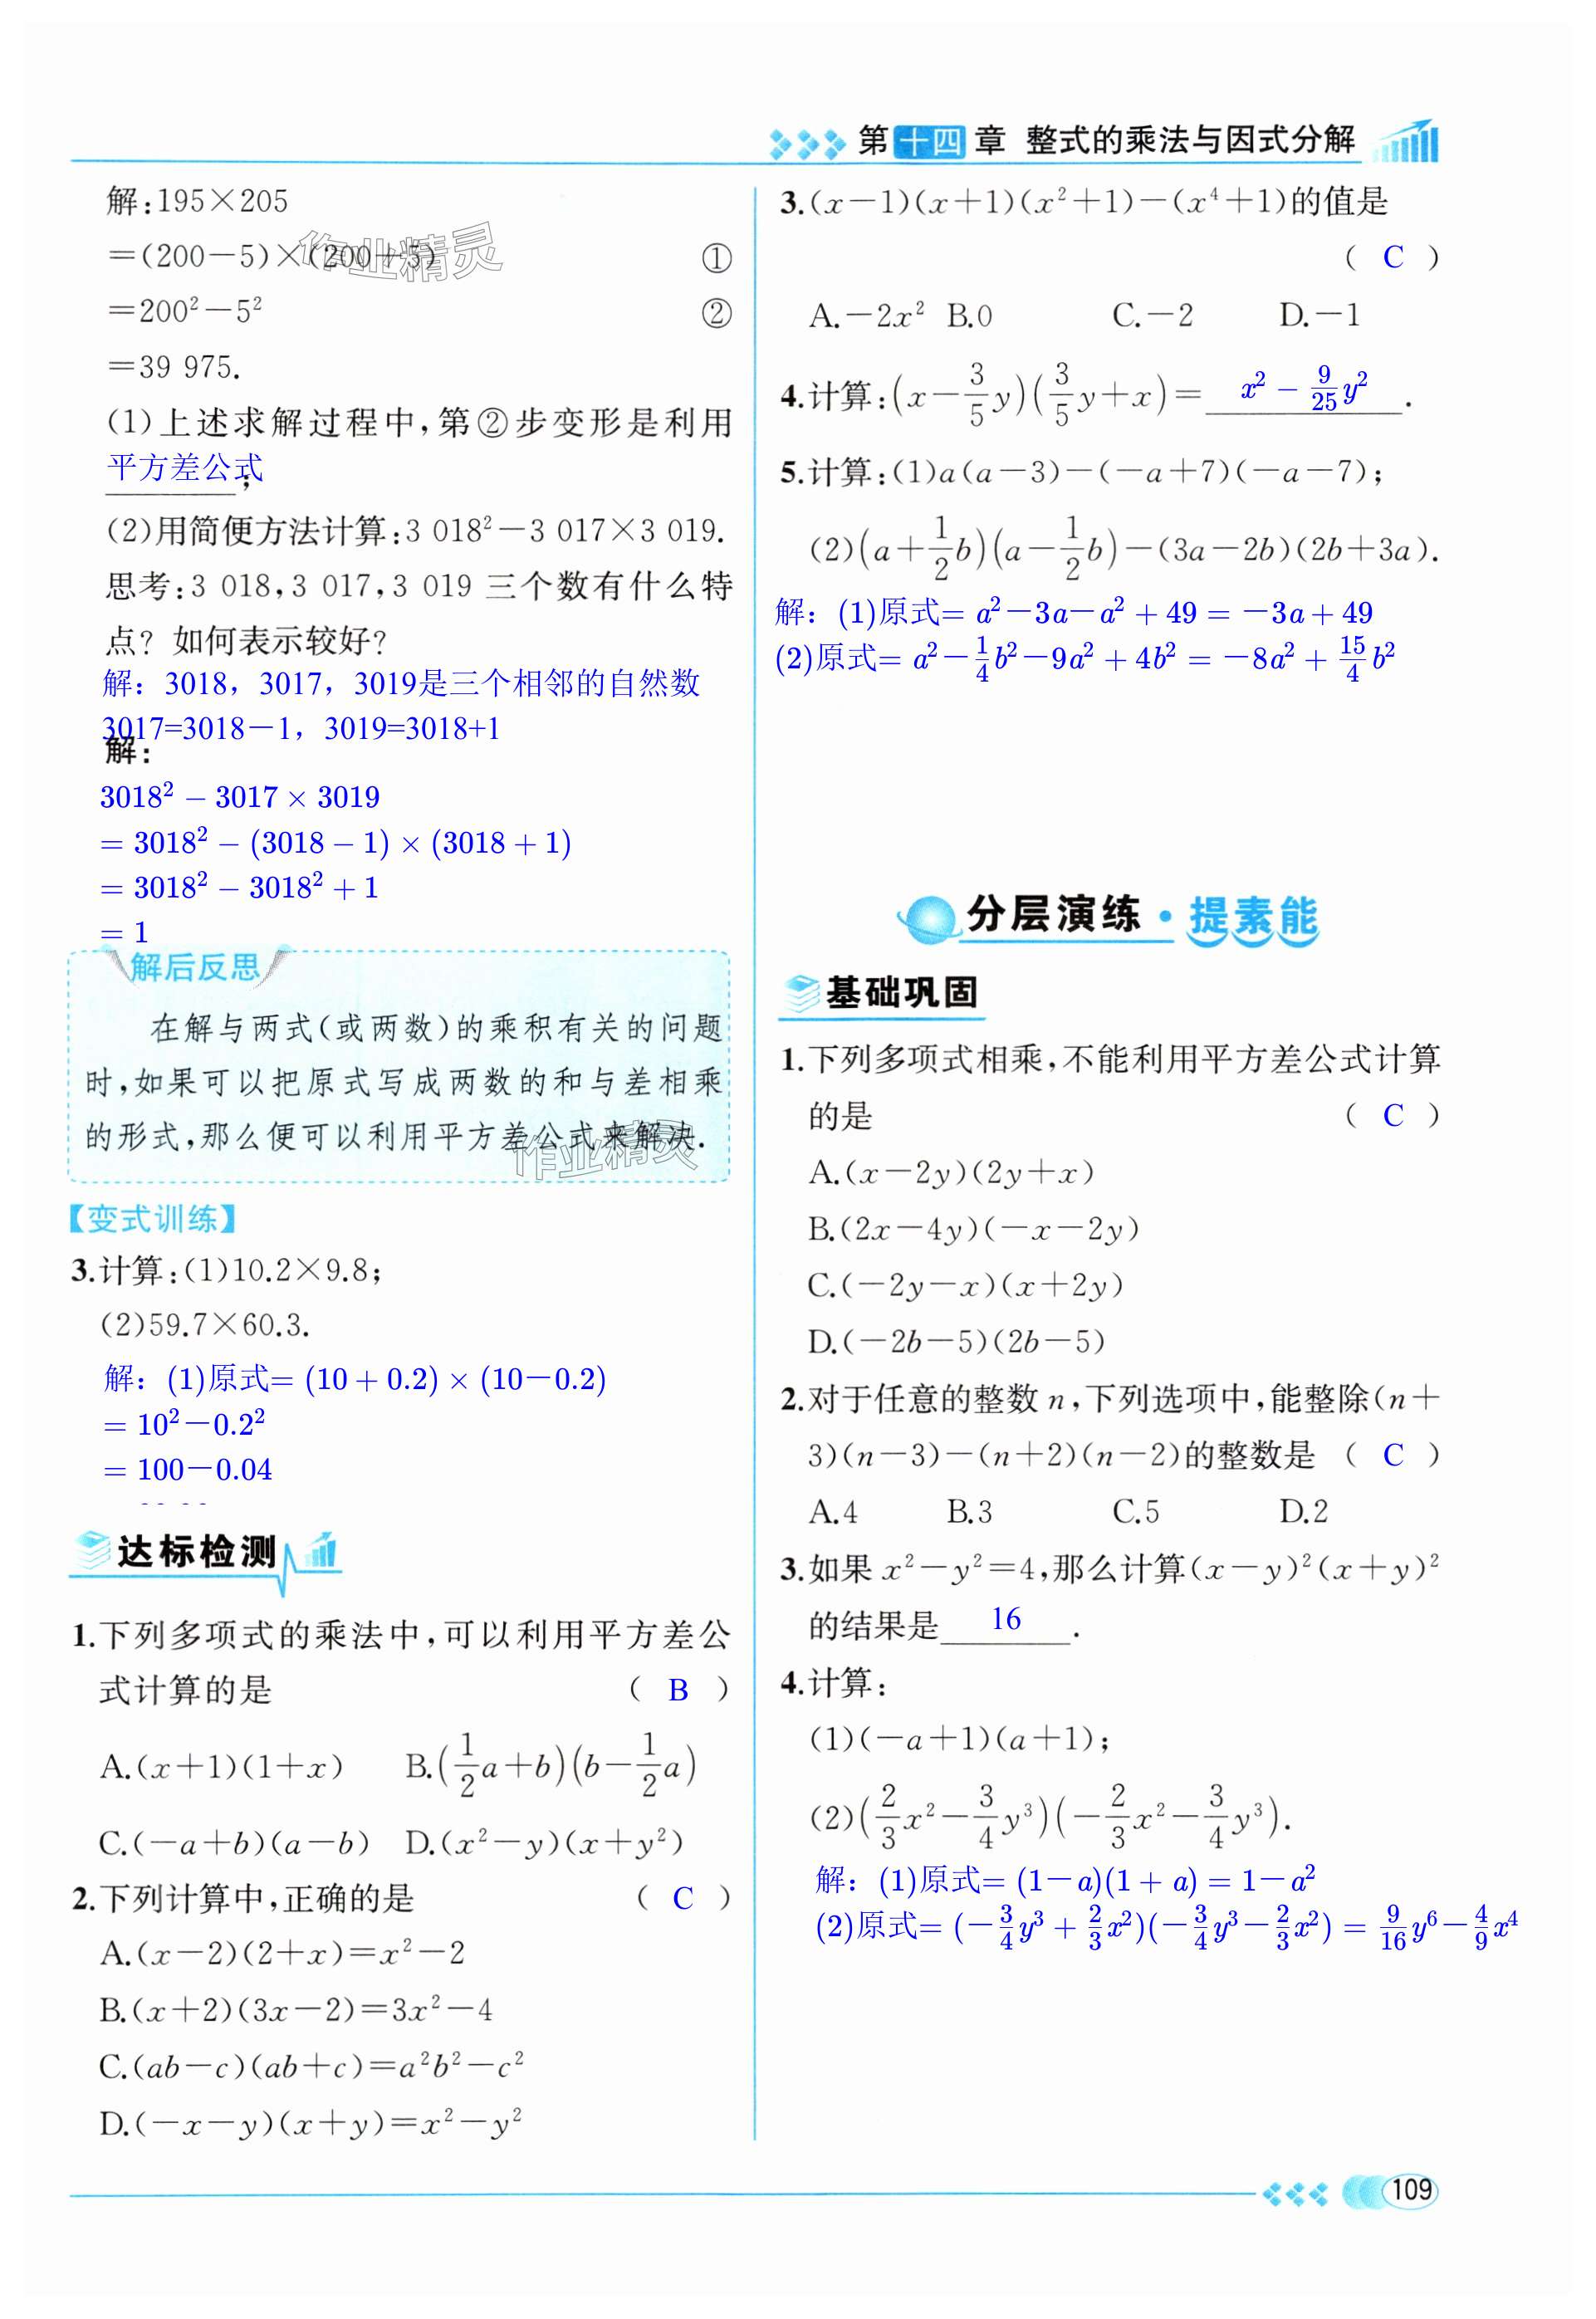 第十四章 整式的乘法与因式分解
解:195×205
=(200-5)×(200+5) ①
=200²-5² ②
=39 975.
(1)上述求解过程中,第②步变形是利用
平方差公式;
(2)用简便方法计算:3 018²-3 017×3 019.
思考:3 018,3 017,3 019 三个数有什么特
点? 如何表示较好?
解：3018，3017，3019是三个相邻的自然数
3017=3018－1，3019=3018+1
解:
3018² - 3017 × 3019
= 3018² - (3018 - 1) × (3018 + 1)
= 3018² - 3018² + 1
= 1
解后反思
在解与两式(或两数)的乘积有关的问题
时,如果可以把原式写成两数的和与差相乘
的形式,那么便可以利用平方差公式来解决.
作业精灵
作业精灵
【变式训练】
3.计算:(1)10.2×9.8;
(2)59.7×60.3.
解：(1)原式= (10 + 0.2) × (10－0.2)
= 10²－0.2²
= 100－0.04
达标检测
1.下列多项式的乘法中,可以利用平方差公
式计算的是 ( B )
A.(x+1)(1+x) B.(1/2 a+b)(b-1/2 a)
C.(-a+b)(a-b) D.(x²-y)(x+y²)
2.下列计算中,正确的是 ( C )
A.(x-2)(2+x)=x²-2
B.(x+2)(3x-2)=3x²-4
C.(ab-c)(ab+c)=a²b²-c²
D.(-x-y)(x+y)=x²-y²
3.(x-1)(x+1)(x²+1)-(x⁴+1)的值是
( C )
A.-2x² B.0 C.-2 D.-1
4.计算:(x-3/5 y)(3/5 y+x)= x² - 9/25 y² .
5.计算:(1)a(a-3)-(-a+7)(-a-7);
(2)(a+1/2 b)(a-1/2 b)-(3a-2b)(2b+3a).
解：(1)原式= a²－3a－a² + 49 = －3a + 49
(2)原式= a²－1/4 b²－9a² + 4b² = －8a² + 15/4 b²
分层演练·提素能
基础巩固
1.下列多项式相乘,不能利用平方差公式计算
的是 ( C )
A.(x-2y)(2y+x)
B.(2x-4y)(-x-2y)
C.(-2y-x)(x+2y)
D.(-2b-5)(2b-5)
2.对于任意的整数 n,下列选项中,能整除(n+
3)(n-3)-(n+2)(n-2)的整数是 ( C )
A.4 B.3 C.5 D.2
3.如果 x²-y²=4,那么计算(x-y)²(x+y)²
的结果是 16 .
4.计算:
(1)(-a+1)(a+1);
(2)(2/3 x²-3/4 y³)(-2/3 x²-3/4 y³).
解：(1)原式= (1－a)(1 + a) = 1－a²
(2)原式= (－3/4 y³ + 2/3 x²)(－3/4 y³－2/3 x²) = 9/16 y⁶－4/9 x⁴
109